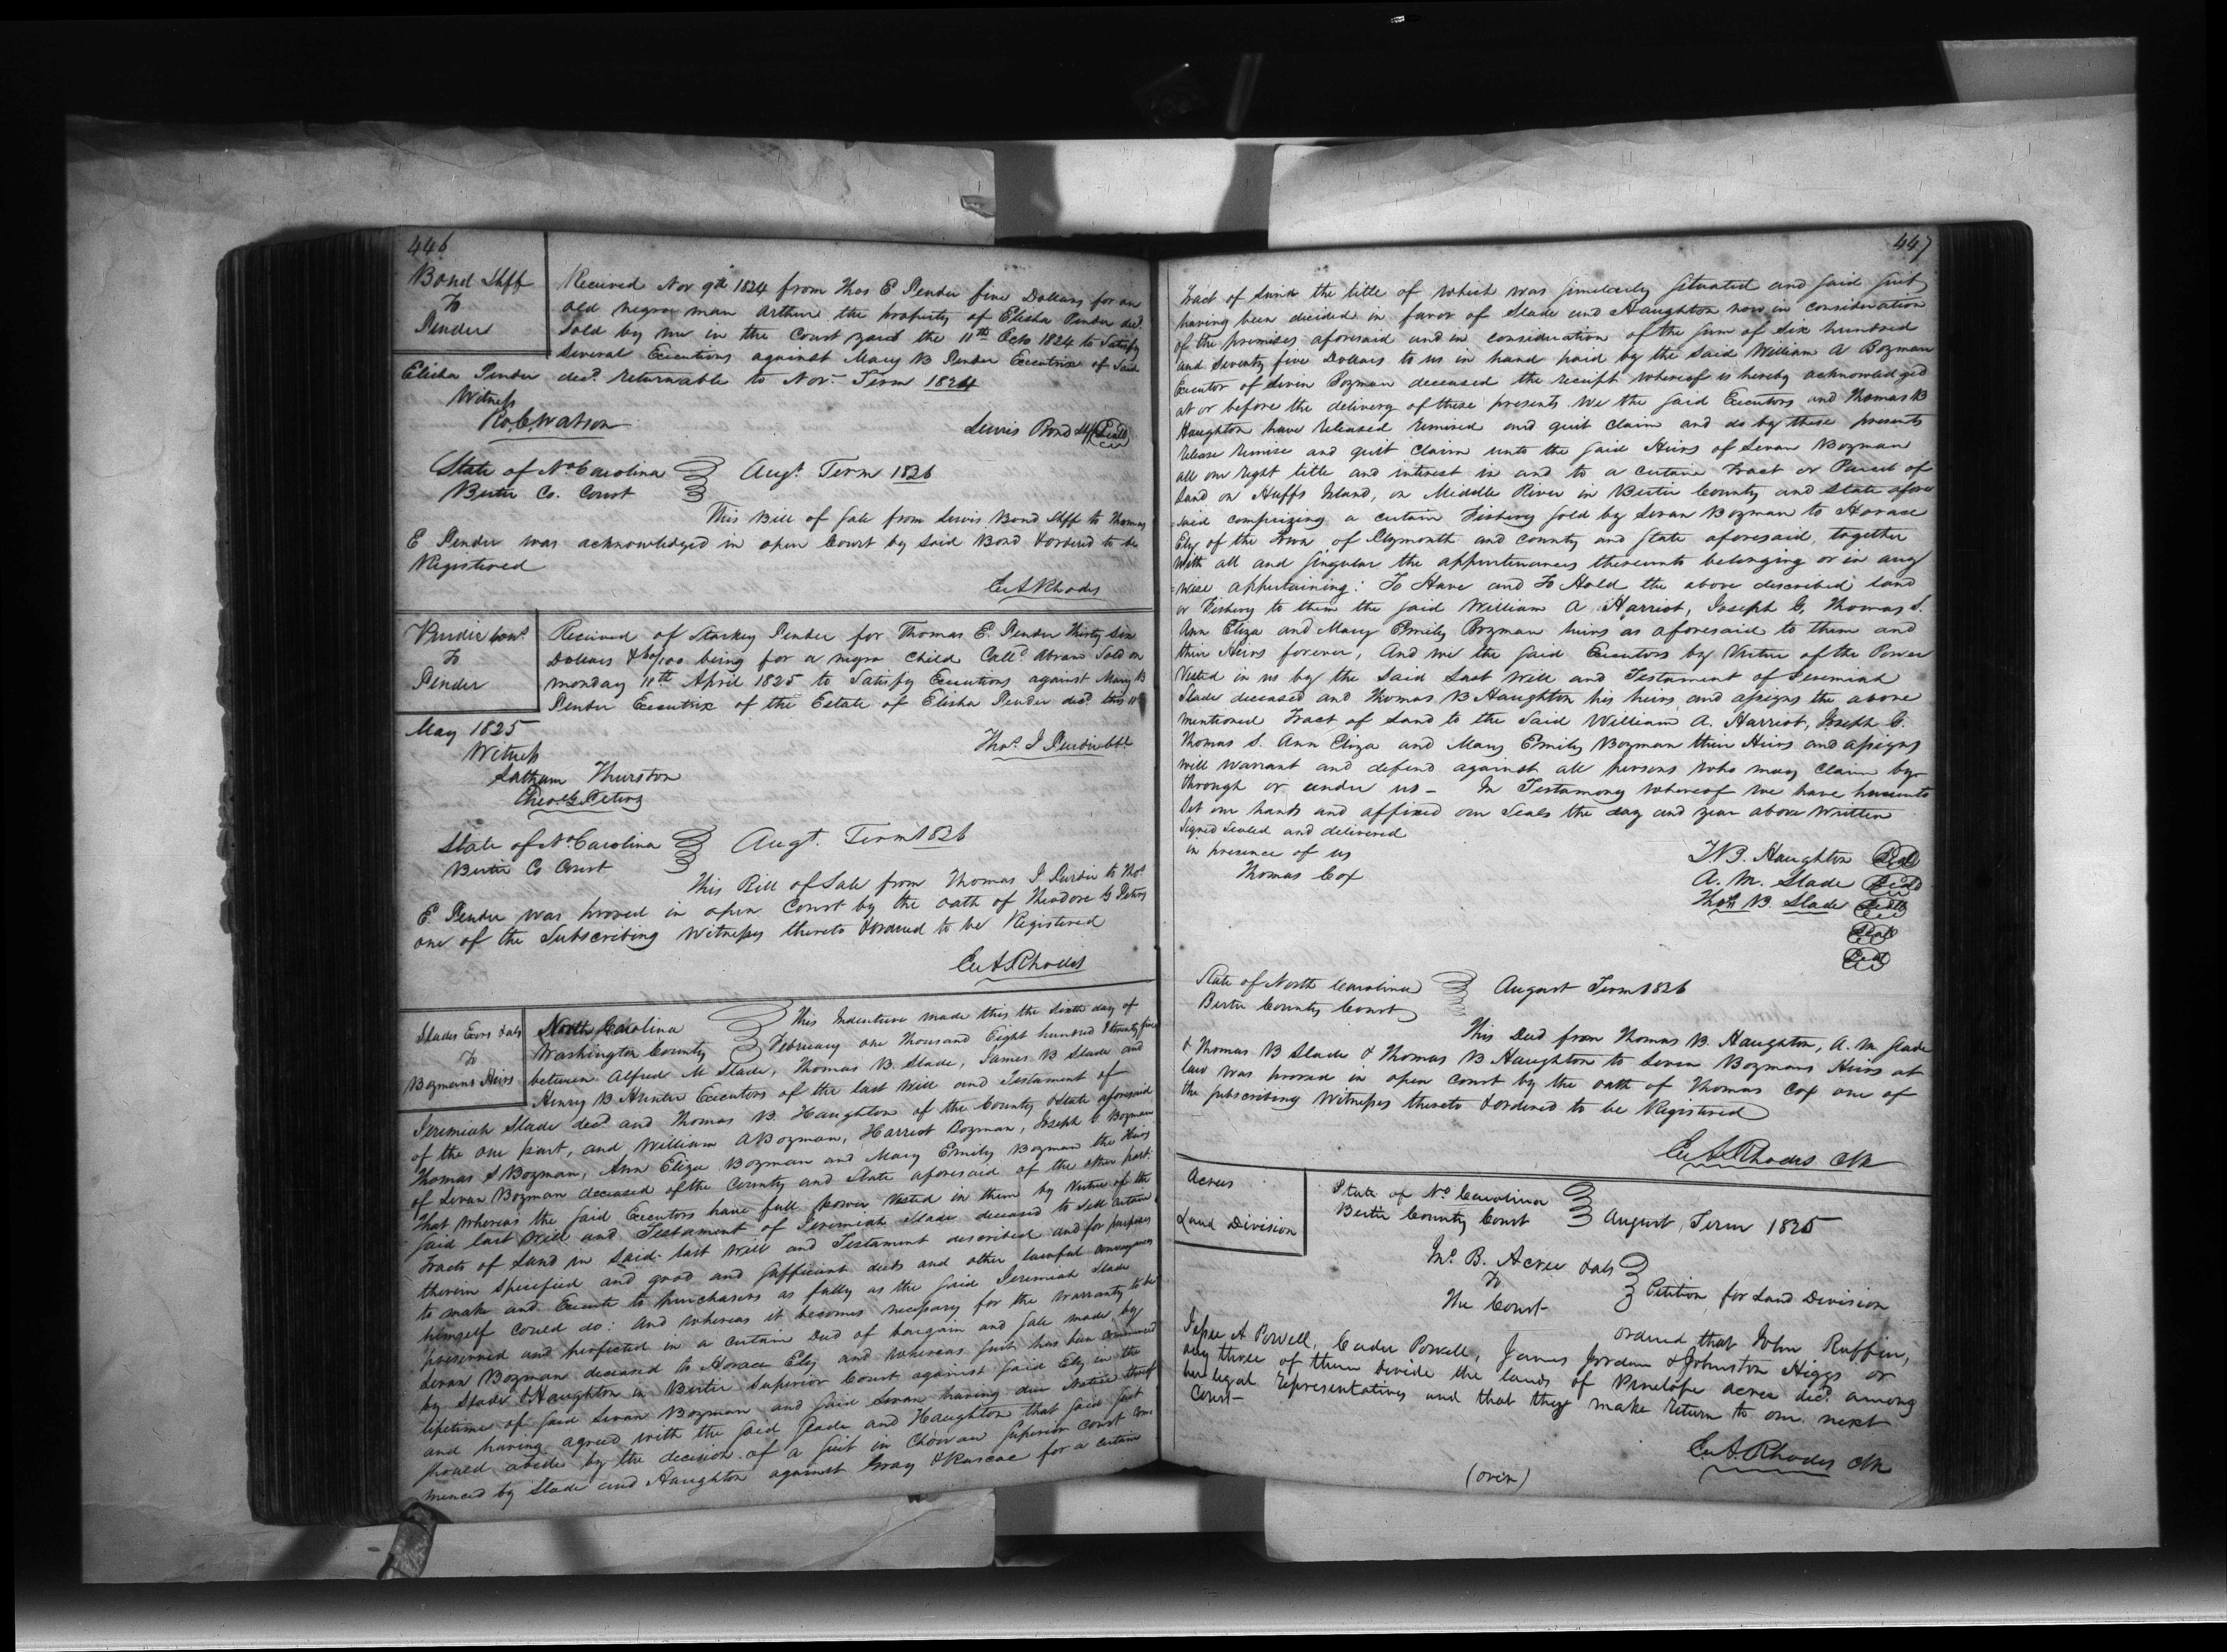 446
Bond Shff
To
Pender
Received Nov 9th 1824 from Thos E Pender five Dollars for an
old negro man Arthur the property of Elisha Pender decd.
Sold by me in the Court yard the 11th Octo 1824 to Satisfy
Several Executions against Mary B Pender Executrix of Said
Elisha Pender decd. returnable to Nov. Term 1824
Witness
Ro. C. Watson
Lewis Bond Shff Seal
State of No Carolina
Bertie Co. Court
Augt. Term 1826
This Bill of Sale from Lewis Bond Shff to Thomas
E Pender was acknowledged in open Court by said Bond & ordered to be
Registered
E. A. Rhodes
To
Pender
Received of Starkey Pender for Thomas E. Pender Thirty Six
Dollars & 60/100 being for a negro child Calld. Abram Sold on
monday 11th April 1825 to Satisfy Executions against Mary B
Pender Executrix of the Estate of Elisha Pender decd. this 11th
May 1825
Witness
Latham Thurston
Theo. G. Peters
State of No. Carolina
Bertie Co Court
Augt. Term 1826
This Bill of Sale from Thomas I Purdie to Thos.
E. Pender was proved in open Court by the oath of Theodore G Peters
one of the Subscribing Witnesses thereto & ordered to be Registered
E. A. Rhodes
Slades Exors & als
To
Bozmans Heirs
North Carolina
Washington County
This Indenture made this the Sixth day of
February one Thousand Eight hundred & twenty five
between Alfred M Slade, Thomas B. Slade, James B Slade and
Henry B Hunter Executors of the last Will and Testament of
Jeremiah Slade decd. and Thomas B. Haughton of the County & State aforesaid
of the one part, and William A Bozman, Harriot Bozman, Joseph G Bozman
Thomas S Bozman, Ann Eliza Bozman and Mary Emily Bozman the Heirs
of Levan Bozman deceased of the County and State aforesaid of the other part
That Whereas the said Executors have full power Vested in them by Virtue of the
said last Will and Testament of Jeremiah Slade deceased to Sell certain
Tracts of Land in said last Will and Testament described and for purposes
therein specified and good and sufficient deeds and other lawful conveyances
to make and Execute to purchasers as fully as the said Jeremiah Slade
himself could do: And whereas it becomes necessary for the warranty to be
preserved and perfected in a certain Deed of bargain and Sale made by
Levan Bozman deceased to Horace Ely and whereas suit has been commenced
by Slade & Haughton in Bertie Superior Court against said Ely in the
lifetime of said Levan Bozman and said Levan having due notice thereof
and having agreed with the said Slade and Haughton that said suit
should abide by the decision of a suit in Chowan Superior Court com
menced by Slade and Haughton against Gray & Rascoe for a certain
447
Tract of Land the title of which was similarly situated and said suit
having been decided in favor of Slade and Haughton now in consideration
of the premises aforesaid and in consideration of the sum of Six hundred
and Seventy five Dollars to us in hand paid by the said William A Bozman
Executor of Levin Bozman deceased the receipt whereof is hereby acknowledged
at or before the delivery of these presents We the said Executors and Thomas B
Haughton have released remised and quit claim and do by these presents
release remise and quit claim unto the said Heirs of Levan Bozman
all our right title and interest in and to a certain Tract or Parcel of
Land on Huffs Island, on Middle River in Bertie County and State afore
=said comprizing a certain Fishery sold by Levan Bozman to Horace
Ely of the Town of Plymouth and County and State aforesaid, together
with all and singular the appurtenances thereunto belonging or in any
=wise appertaining: To Have and To Hold the above described land
or Fishery to them the said William A Harriot, Joseph G, Thomas S.
Ann Eliza and Mary Emily Bozman heirs as aforesaid to them and
their Heirs forever, And we the said Executors by Virtue of the Power
Vested in us by the Said Last Will and Testament of Jeremiah
Slade deceased and Thomas B Haughton his heirs and assigns the above
mentioned Tract of Land to the Said William A. Harriot, Joseph G.
Thomas S. Ann Eliza and Mary Emily Bozman their Heirs and assigns
will warrant and defend against all persons who may claim by
through or under us - In Testamony whereof we have hereunto
Set our hands and affixed our Seals the day and year above Written
Signed Sealed and delivered
in presence of us
Thomas Cox
T. B. Haughton Seal
A. M. Slade Seal
Thos B. Slade Seal
Seal
Seal
State of North Carolina
Bertie County Court
August Term 1826
This Deed from Thomas B. Haughton, A. M. Slade
& Thomas B Slade & Thomas B Haughton to Levan Bozmans Heirs at
law was proved in open Court by the oath of Thomas Cox one of
the subscribing Witnesses thereto & ordered to be Registered
E. A. Rhodes Clk
Acrees
Land Division
State of No Carolina
Bertie County Court
August Term 1825
B. Acree & als
To
The Court
Petition for Land Division
ordered that John Ruffin,
Jesse A Powell, Cader Powell, James Jordan & Johnston Higgs or
any three of them divide the lands of Penelope acree decd. among
her legal representatives and that they make return to our next
Court-
E. A. Rhodes Clk
(over)